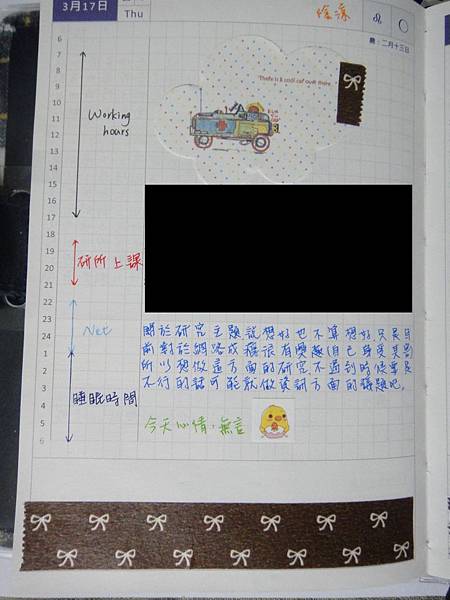 3月17日
Thu
徐涼
農:二月十三日
6
7
8
9
10
11
12
13
14
15
16
17
18
19
20
21
22
23
24
1
2
3
4
5
6
Working
hours
There's a cool car over there
研所上課
Net
睡眠時間
關於研究主題說想好也不算想好,只是目
前對於網路成癮很有興趣(自己身受其害)
所以想做這方面的研究,不過到時候要是
不行的話可能就做資訊方面的議題吧.
今天心情:無言